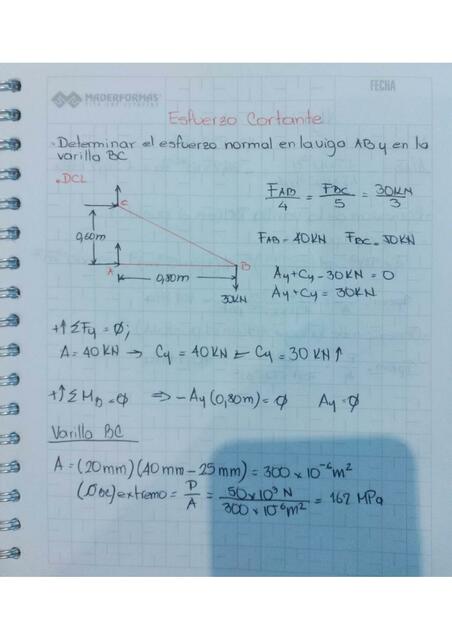 MADERFORMAS
FECHA
Esfuerzo Cortante
• Determinar el esfuerzo normal en la viga AB y en la
varilla BC
• DCL
C
0,60m
A
B
0,80m
30KN
F_AB/4 = F_BC/5 = 30KN/3
F_AB = 40KN F_BC = 50KN
Ay + Cy - 30KN = 0
Ay + Cy = 30KN
+↑ ΣFy = ∅;
A = 40KN → Cy = 40KN ← Cy = 30KN↑
+↑ ΣM_B = ∅ ⇒ - Ay (0,80m) = ∅ Ay = ∅
Varilla BC
A = (20mm)(40mm - 25mm) = 300 × 10⁻⁶ m²
(σ_BC) extremo = P/A = 50×10³ N / 300 × 10⁻⁶ m² = 167 MPa